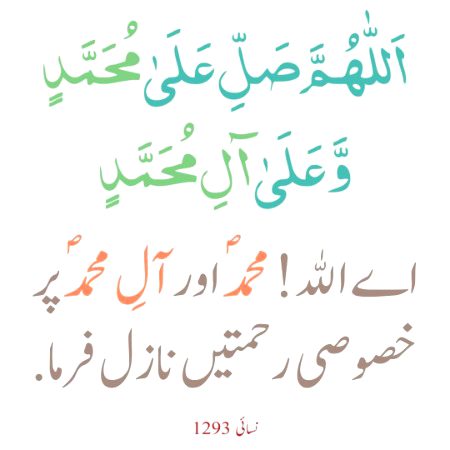 اَللّٰهُمَّ صَلِّ عَلَىٰ مُحَمَّدٍ
وَّعَلَىٰ آلِ مُحَمَّدٍ
اے اللہ! محمدؐ اور آلِ محمدؐ پر
خصوصی رحمتیں نازل فرما.
نسائی 1293